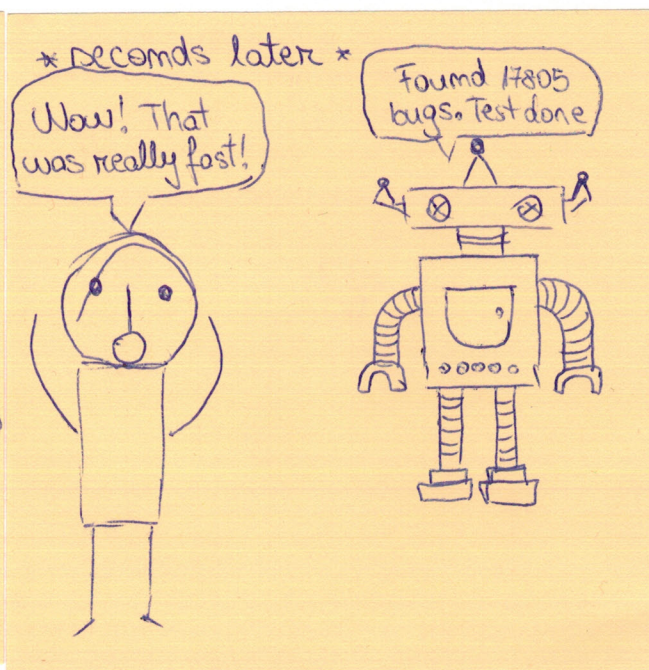 * seconds later *
Wow! That
was really fast!
Found 17805
bugs. Test done